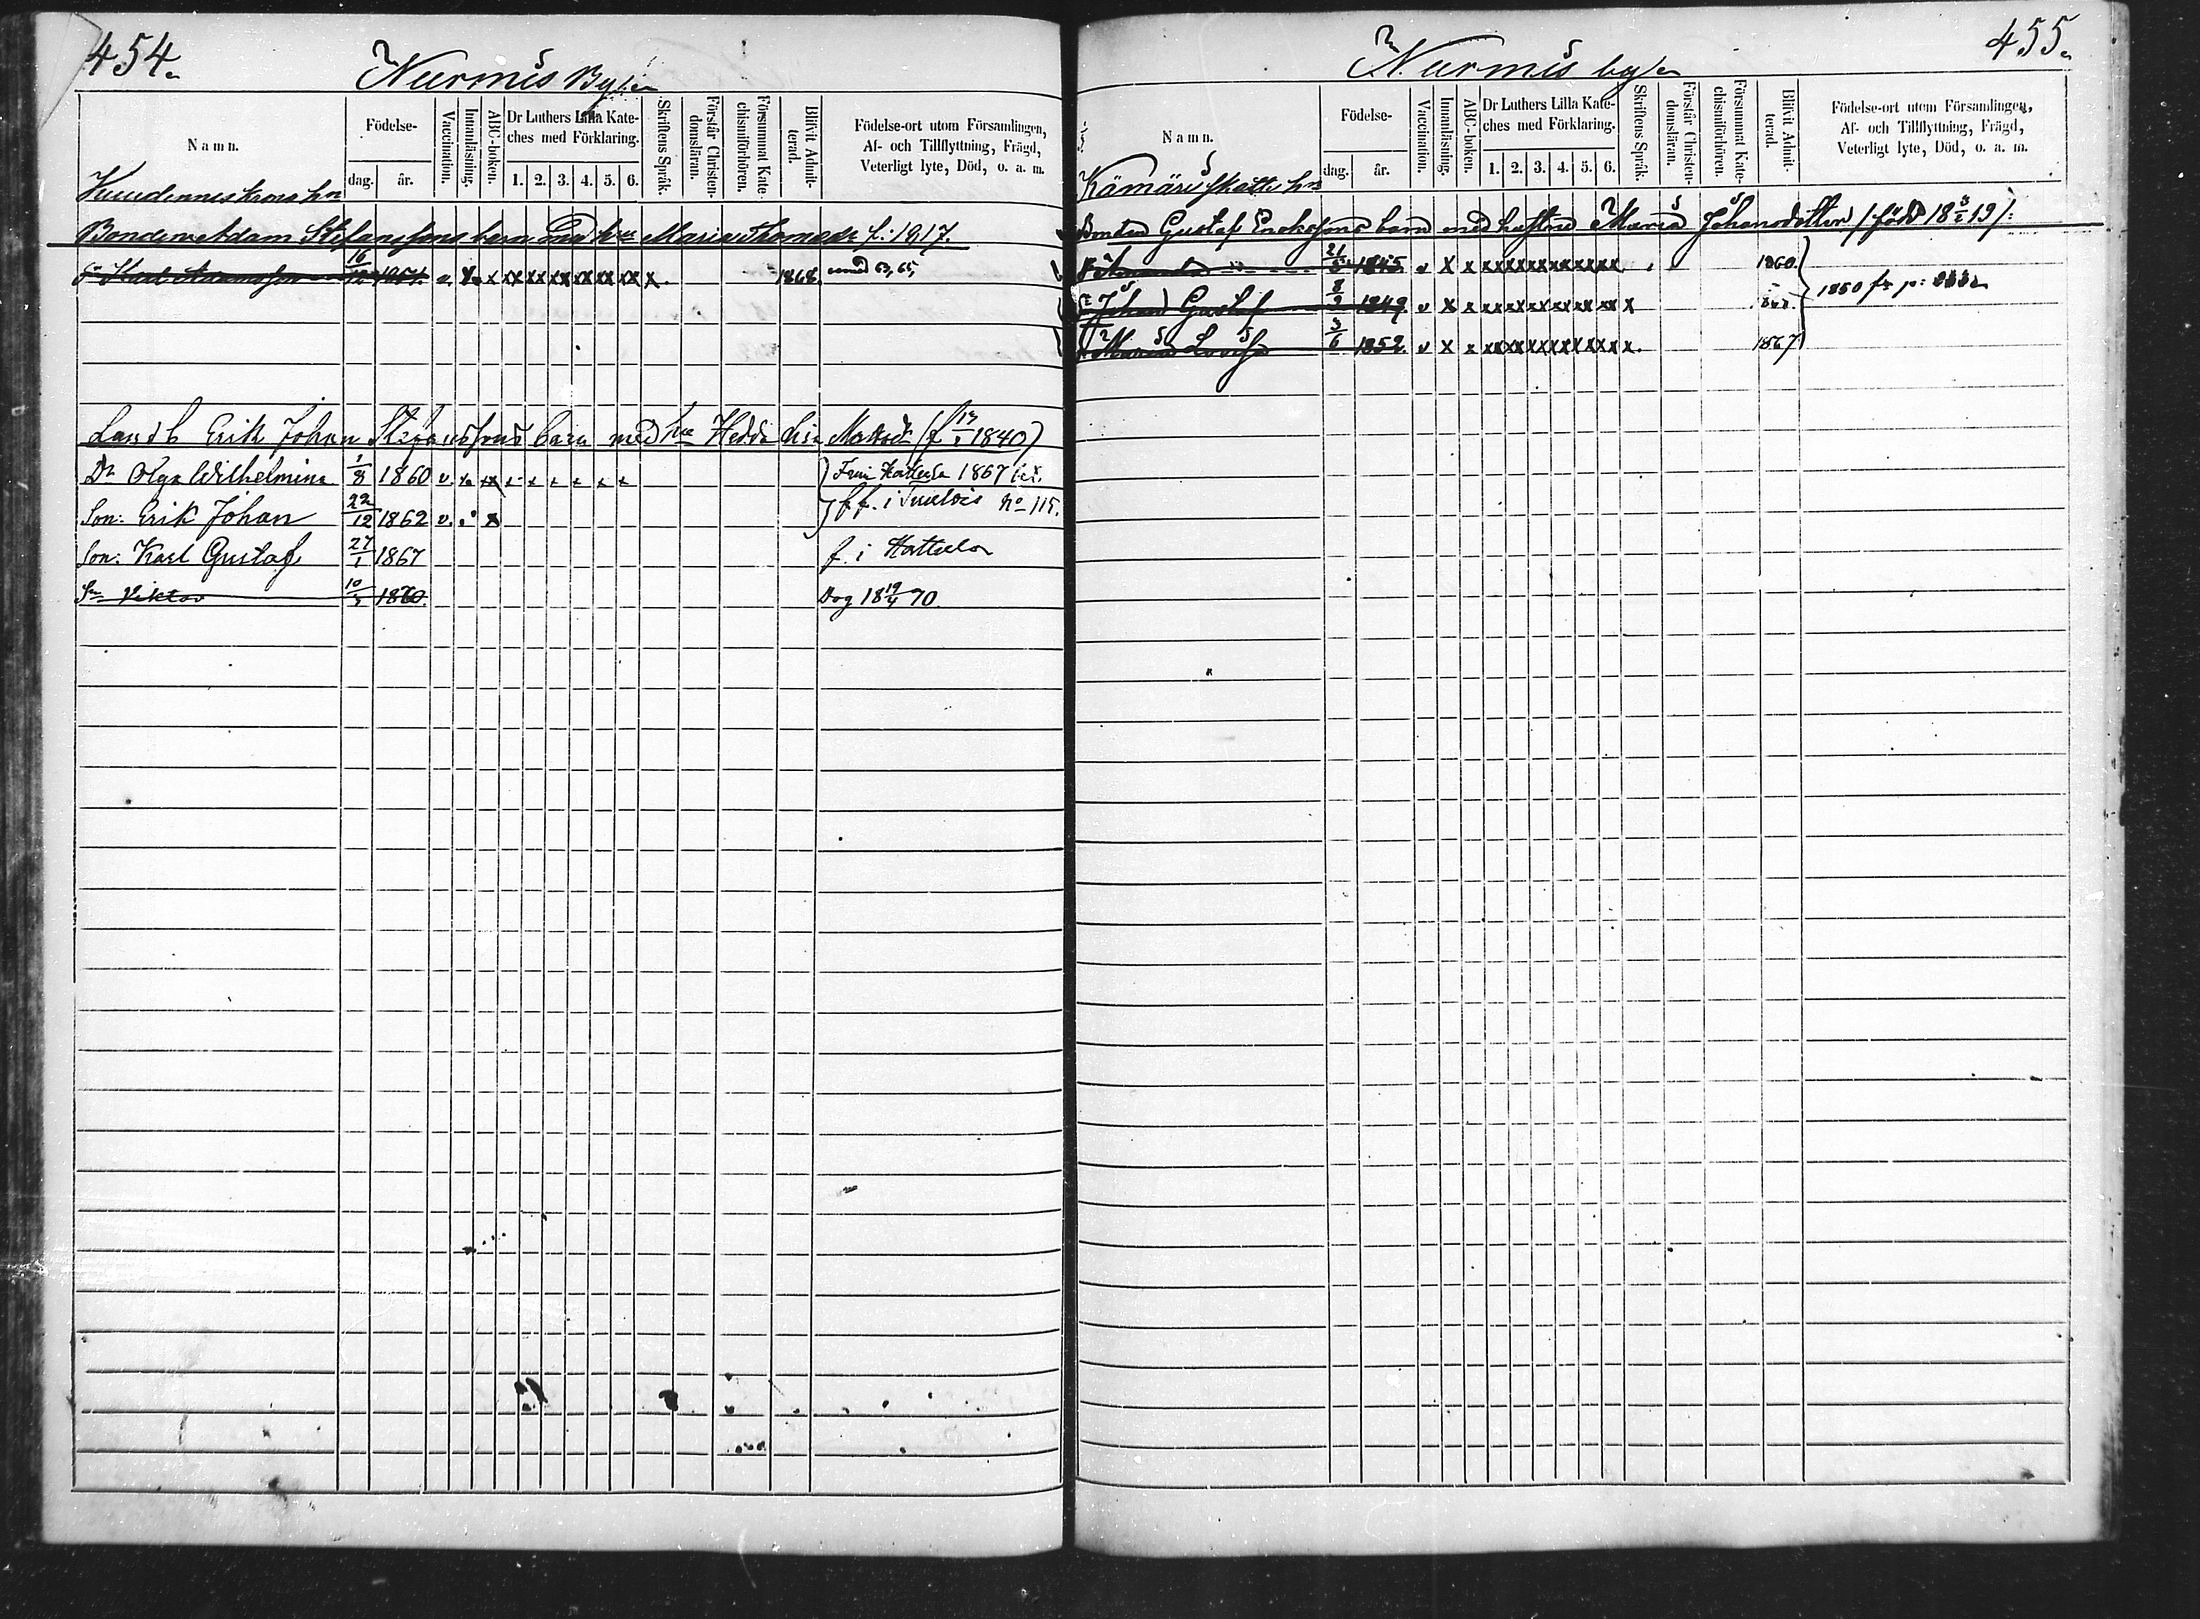 454.
Nurmis By
Namn.
Födelse-
dag.
år.
Vaccination.
Innanläsning.
ABC-boken.
Dr Luthers Lilla Kate-
ches med Förklaring.
1. 2. 3. 4. 5. 6.
Skriftens Språk.
Förstår Christen-
domsläran.
Försummat Kate-
chismiförhören.
Blifvit Admit-
terad.
Födelse-ort utom Församlingen,
Af- och Tillflyttning, Frägd,
Veterligt lyte, Död, o. a. m.
Bonden Adam Stefanssons barn med hu Maria f: 1817.
Karl Adamsson 16/12 1851. x x x x x x x x x 1868.
Landb Erik Johan Stefanssons barn med hu Hedda Lisa (f 1840)
Dr Olga Wilhelmina 1/8 1860 v. Från Hattula 1867 bet.
Son: Erik Johan 22/12 1862 v. x f. i Tuulois No 115.
Son: Karl Gustaf 27/1 1867 f. i Hattula
Sn Viktor 1870. Dog 18 19/4 70.
455.
Nurmis by
Namn.
Födelse-
dag.
år.
Vaccination.
Innanläsning.
ABC-boken.
Dr Luthers Lilla Kate-
ches med Förklaring.
1. 2. 3. 4. 5. 6.
Skriftens Språk.
Förstår Christen-
domsläran.
Försummat Kate-
chismiförhören.
Blifvit Admit-
terad.
Födelse-ort utom Församlingen,
Af- och Tillflyttning, Frägd,
Veterligt lyte, Död, o. a. m.
Kämäri Skatte hn
Bonden Gustaf Erikssons barn med hustru Maria Johansdotter /: född 18 19 /:
Amanda 21/5 1845 v x x x x x x x x 1860
Johan Gustaf 8/2 1849 v x x x x x x x x x 1850 fr p:
Maria Lovisa 3/6 1852 v x x x x x x x x x 1867